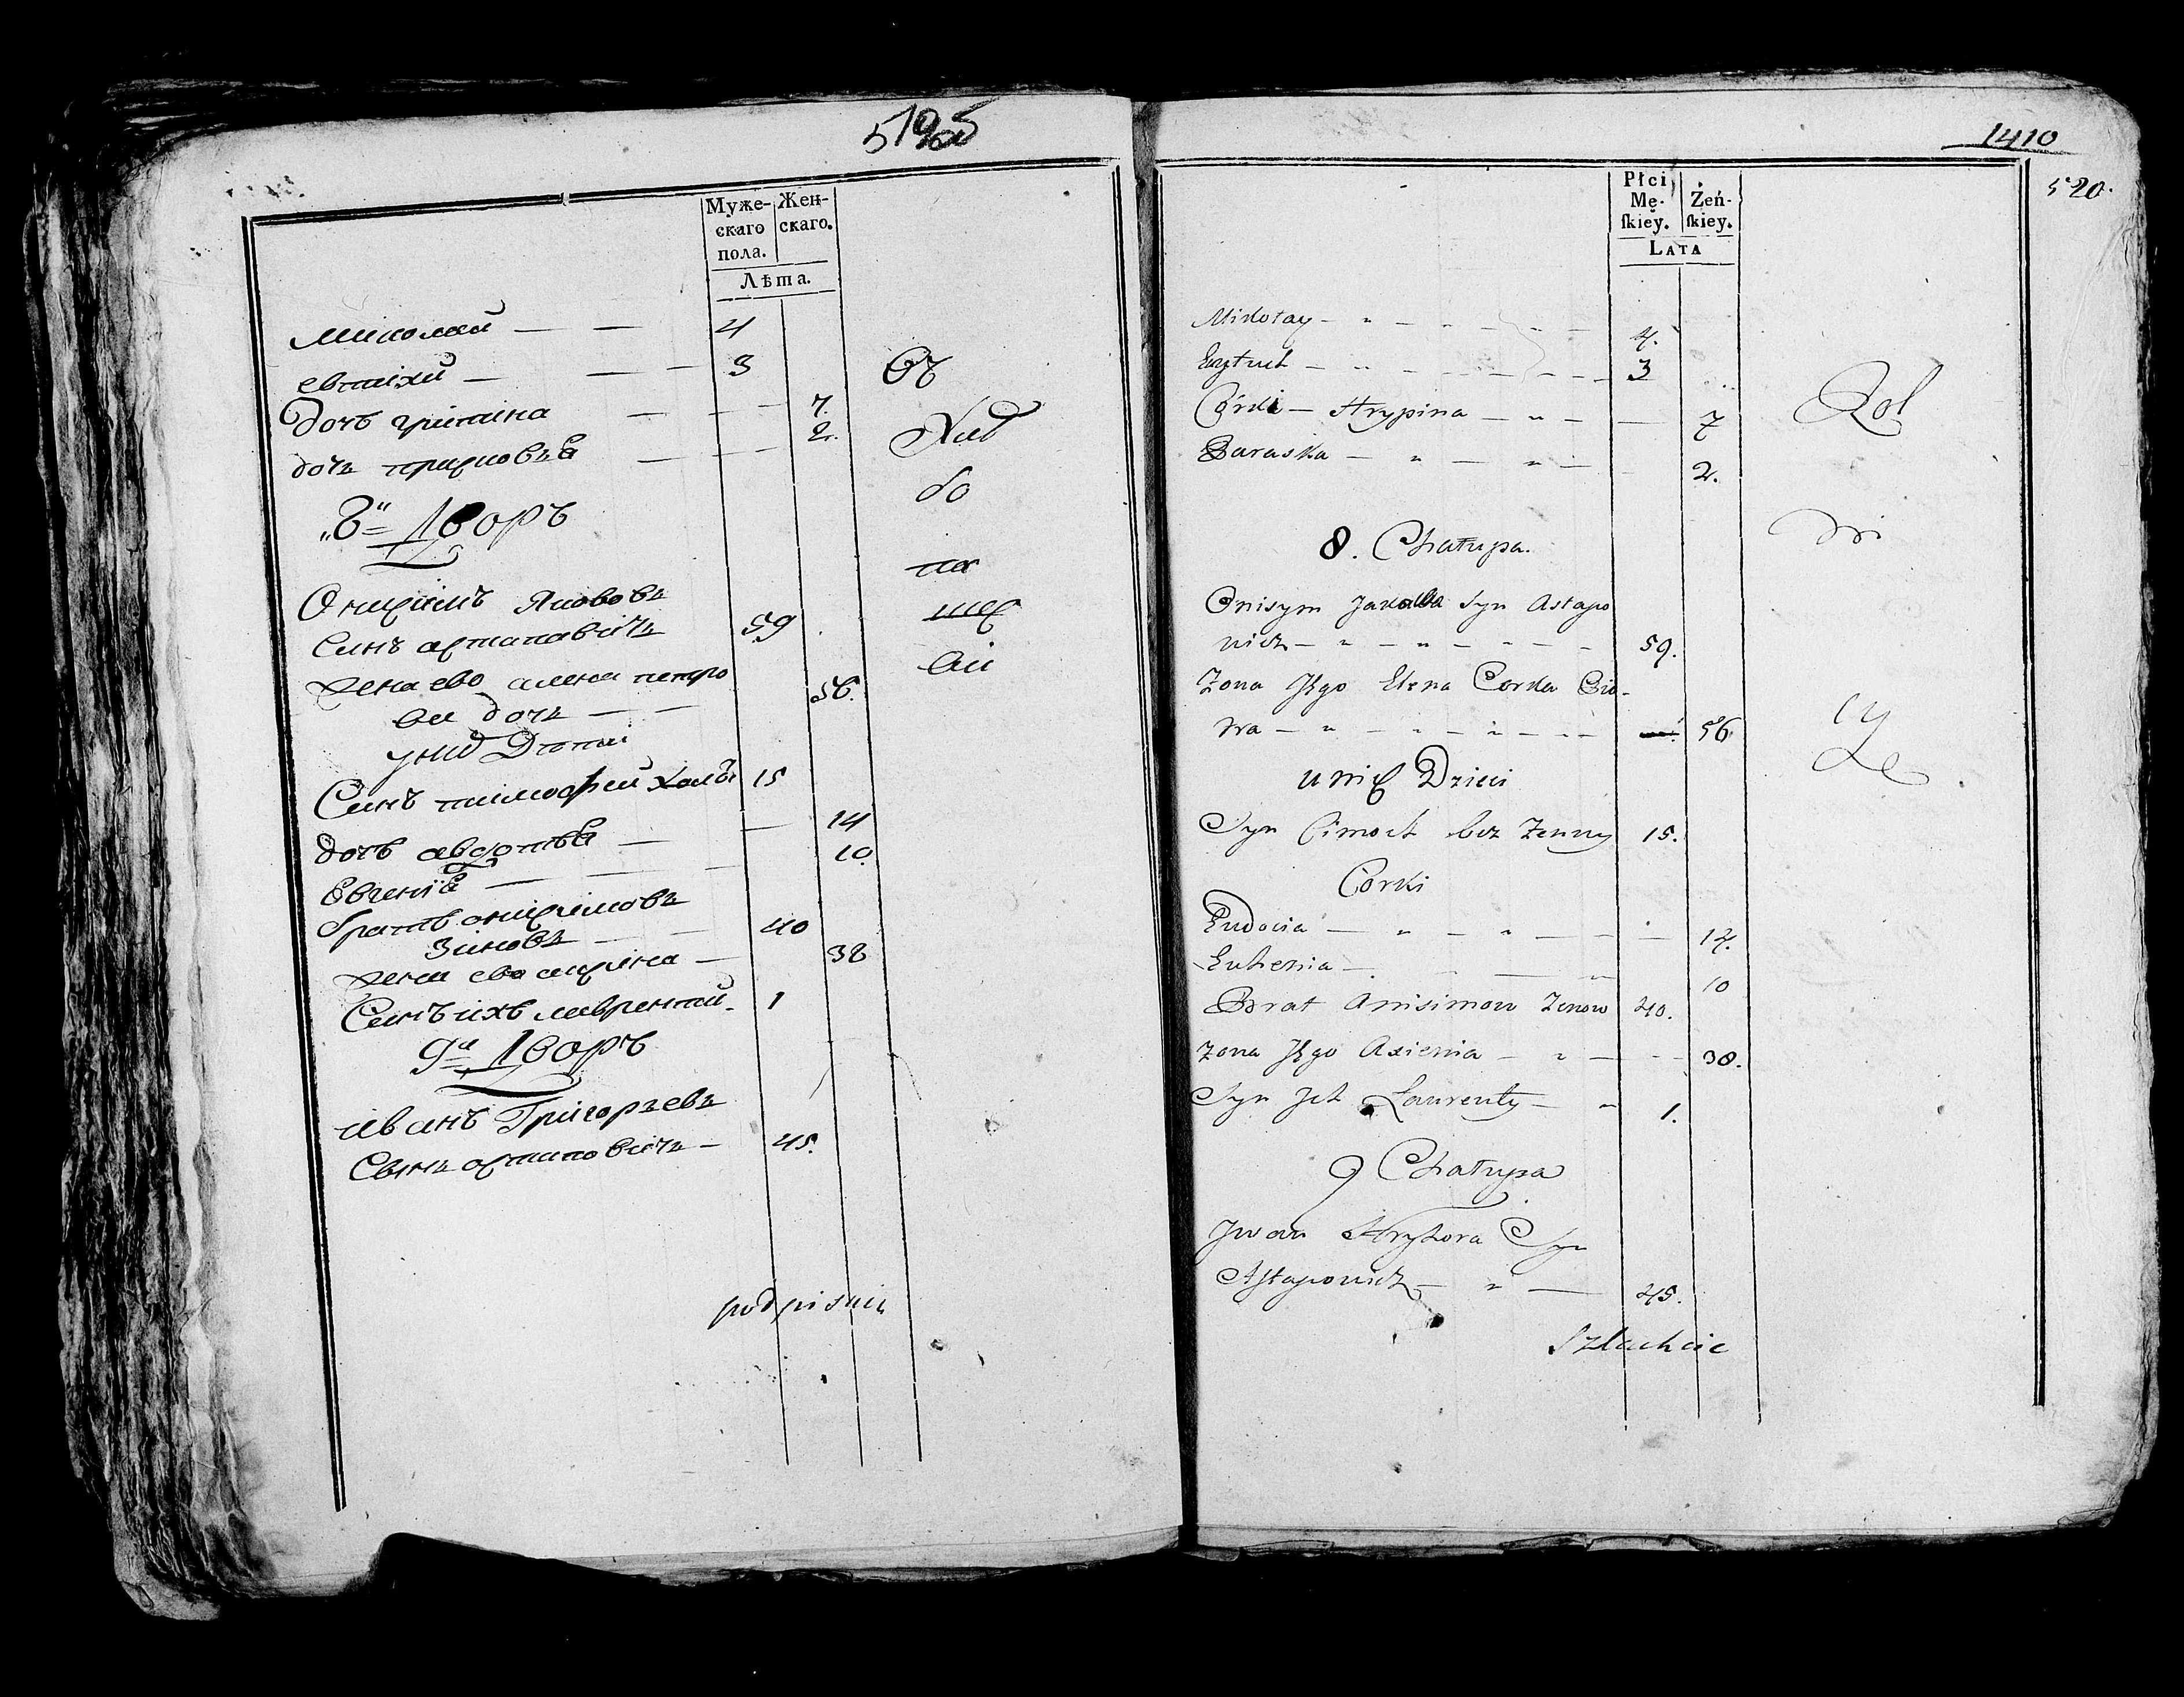 5195
Муже-
скаго
пола.
Жен-
скаго.
Лѣта.
миколай — — 4
евтихи — — — 3
дочь грипина — — — 7.
дочь прасковъѣ — — — 2.
„8" дворъ
Онисимъ Яковов
Синъ астапавичъ 59
жена ево алена петро
ва дочъ — — 56.
у нид Дѣтей
Синъ тимофей холы 15
дочъ авдотъѣ — — 14
Евгениѣ — — — 10.
братъ онисимовъ
Зиновъ — — 40
жена ева аксина — 38
Синъ ихъ лаврентий — 1
9й дворъ
иванъ Григоръевъ
Свинъ астаповичъ — 45.
Хлѣ
бо
па
ше
podpisuię
1410
520.
Płci
Mę-
ſkiey.
Żeń-
ſkiey.
LATA
Mikołay — " — — — — 4.
Eŭtuch — " — — — — 3
Córki — Hrypina — " — — 7
Paraska — " — " — 2.
8. Chałupa.
Onisym Jakuba Syn Astapo
wicz — " — " — — — 59.
Zona Jego Elena Corka Pio-
tra — " — " — " — — 56.
u nich Dzieci
Syn Cimoch bez Zenny 15.
Corki
Eudocia — " — " — — — 14.
Euhenia — — — " 10
Brat Anisimow Zenow 40.
zona Jego Axienia — " — — 38.
Syn Ich Laurenty — " 1.
9 Chałupa
Jwan Hryhora Syn
Astapowicz — " — 45.
Szlachcic
Rol
ni
cy